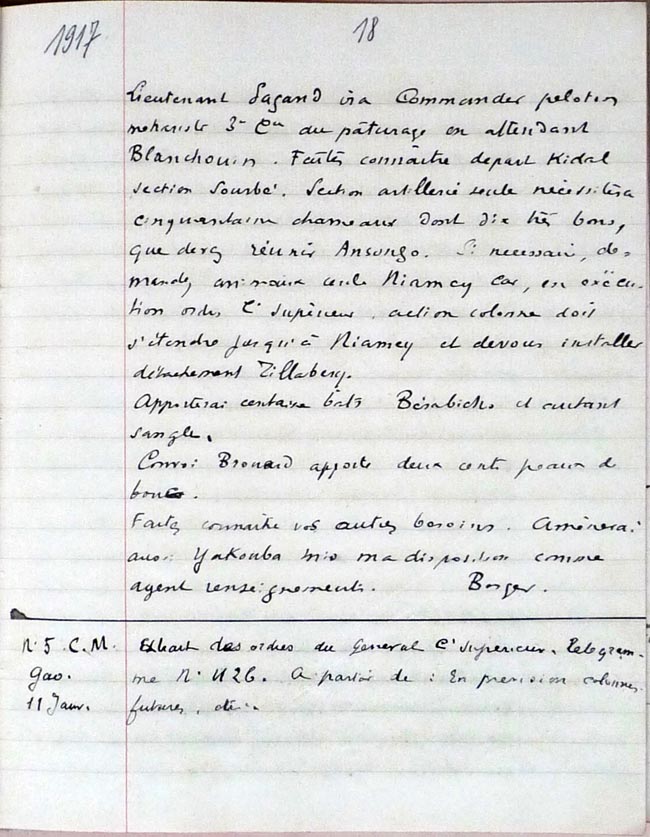 1917
18
Lieutenant Lagand ira Commander peloton
méhariste 3e Cie du pâturage en attendant
Blanchouin. Faites connaître départ Kidal
section Sourbé. Section artillerie seule nécessitera
cinquantaine chameaux dont dix très bons,
que devez réunir Ansongo. Si necessaire, de-
mandez animaux cercle Niamey car, en exécu-
tion ordres Ct Supérieur, action colonne doit
s'étendre jusqu'à Niamey et devons installer
détachement Tillabery.
Apporterai centaine bâts Bérabichs et autant
sangle.
Convoi Brouard apporte deux cents peaux de
boucs.
Faites connaître vos autres besoins. Amènerai
aussi Yakouba mis ma disposition comme
agent renseignements. Berger.
N° 5. C. M.
Gao.
11 Janv.
Extrait des ordres du Général Ct Supérieur. Télégram-
me N° 1126. A partir de : En prévision colonnes
futures, etc...